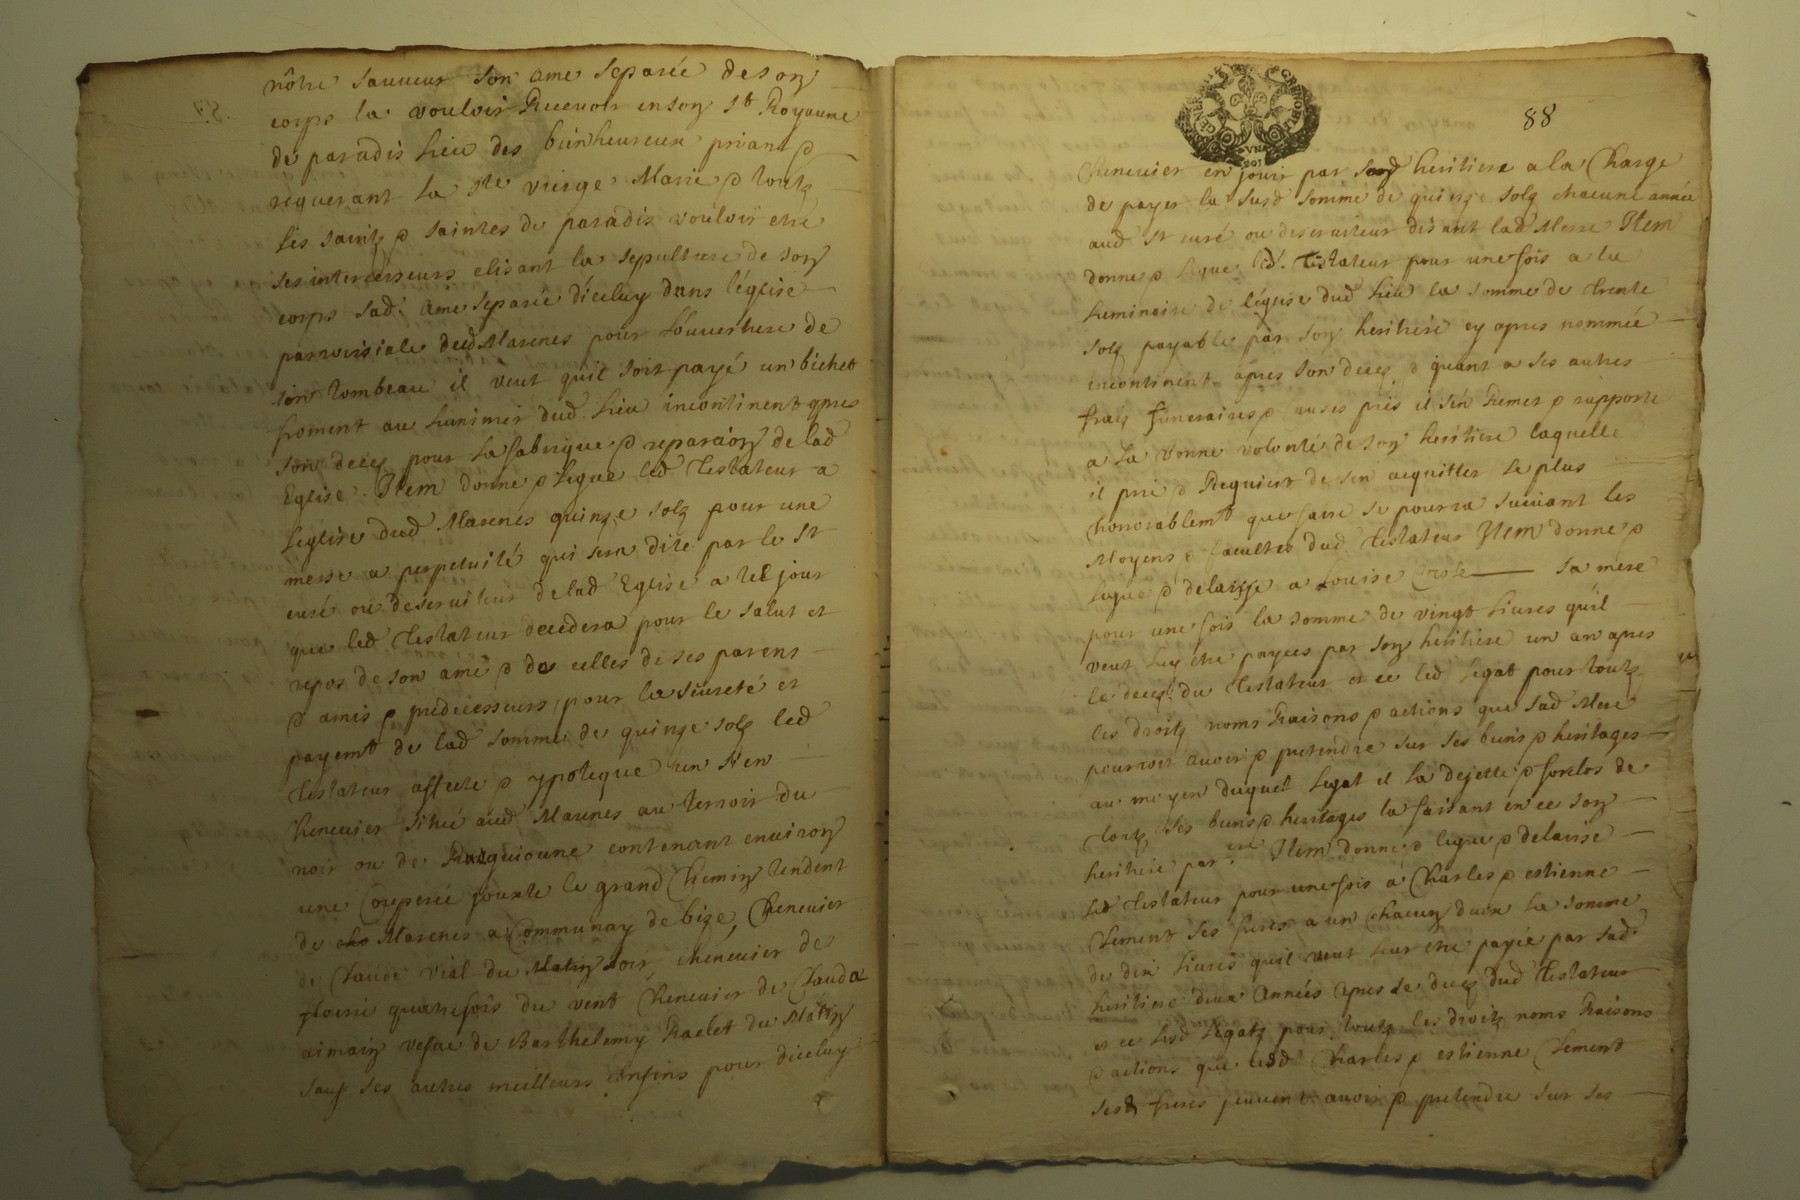 nôtre sauueur son ame separée de son
corps la vouloir Receuoir en son st Royaume
de paradis lieu des bienheureux priant &
requerant la ste vierge Marie & touts
les saints & saintes de paradis vouloir etre
ses intercesseurs elisant la sepulture de son
corps sad. ame separée diceluy dans léglise
parroissiale dud Marenes pour louuerture de
son tombeau il veut quil soit payé un bichet
froment au luminier dud lieu incontinent apres
son deces pour la fabrique & reparaion de lad
Eglise. Item donne & legue led testateur a
leglise dud Marenes quinze sols pour une
messe a perpetuité qui sera dite par le sr
curé ou deseruiteur de lad Eglise a tel jour
que led testateur decedera pour le salut et
repos de son ame & de celles de ses parens
& amis & predecesseurs, pour la seureté et
payemt de lad somme de quinze sols led
testateur affecte & ypoteque un sien
Cheneuier situé aud Marenes au terroir du
noir ou de contenant enuiron
une Couperée jouxte le grand Chemin tendent
de Marenes a Communay de bize, Cheneuier
de Claude vial du soir, cheneuier de
fleurie quatrefois du vent Cheneuier de Clauda
aimain vefue de Barthelemy Raclet du Matin
sauf ses autres meilleurs confins pour diceluy
88
GENER GRENOBLE
Cheneuier en jouir par sad heritiere a la Charge
de payer la susd somme de quinze sols chacune année
aud sr curé ou deseruiteur disant lad Messe Item
donne & legue led. testateur pour une fois a la
luminaire de léglise dud lieu la somme de trente
sols payable par son heritiere cy apres nommée
incontinent apres son deces & quant a ses autres
frais funeraires & il sen Remet & rapporte
a la bonne volonté de son heritiere laquelle
il prie & Requiert de sen acquitter le plus
honnorablemt que faire se pourra suiuant les
Moyens & facultes dud testateur Item donne &
legue & delaisse a Louise sa mere
pour une fois la somme de vingt liures quil
veut luy etre payées par son heritiere un an apres
le deces du testateur et ce led légat pour touts
les droits noms Raisons & actions que sad Mere
pourroit auoir & pretendre sur ses biens & heritages
au moyen duquel legat il la dejette & forclos de
touts ses biens & heritages la faisant en ce son
heritiere par.re Item donne & legue & delaisse
led testateur pour une fois a Charles & estienne
Clement ses freres a un chacun deux la somme
de dix liures quil veut leur etre payée par sad.
heritiere deux années apres le deces dud testateur
et ce lesd légats pour touts les droits noms Raisons
& actions que lesd Charles & estienne Clement
ses freres peuuent auoir & pretendre sur ses